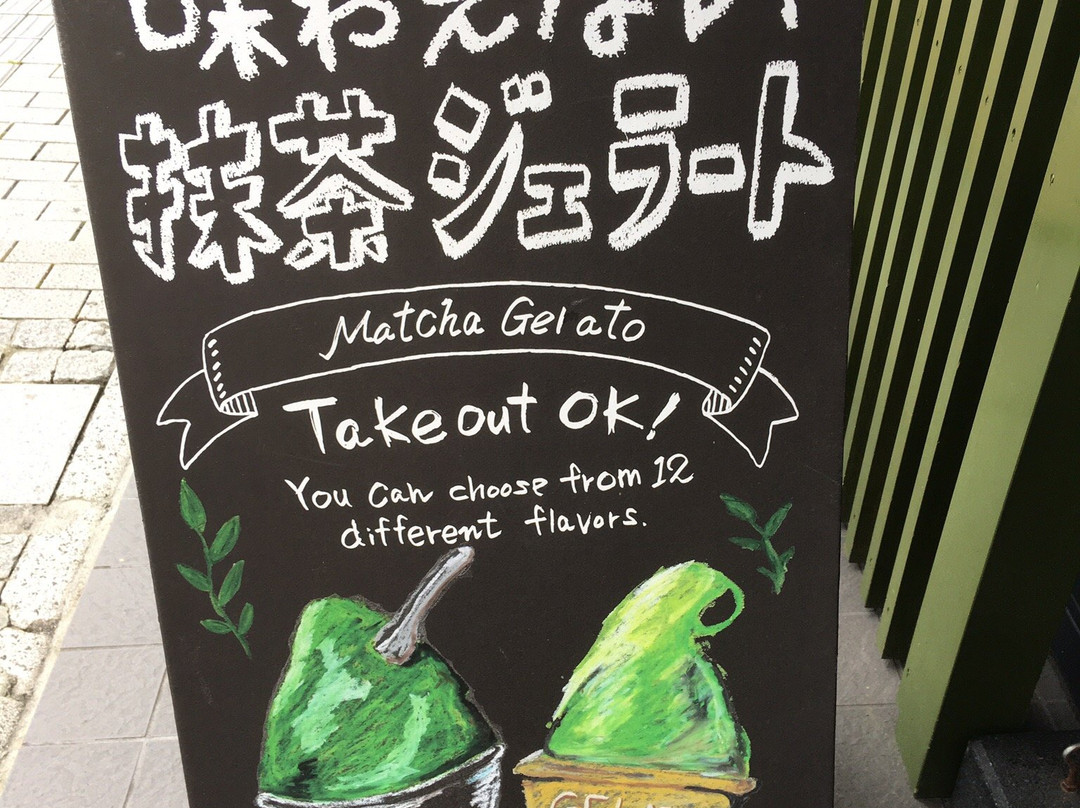 味わえない
抹茶ジェラート
Matcha Gelato
Takeout OK!
You can choose from 12
different flavors.
GELATO